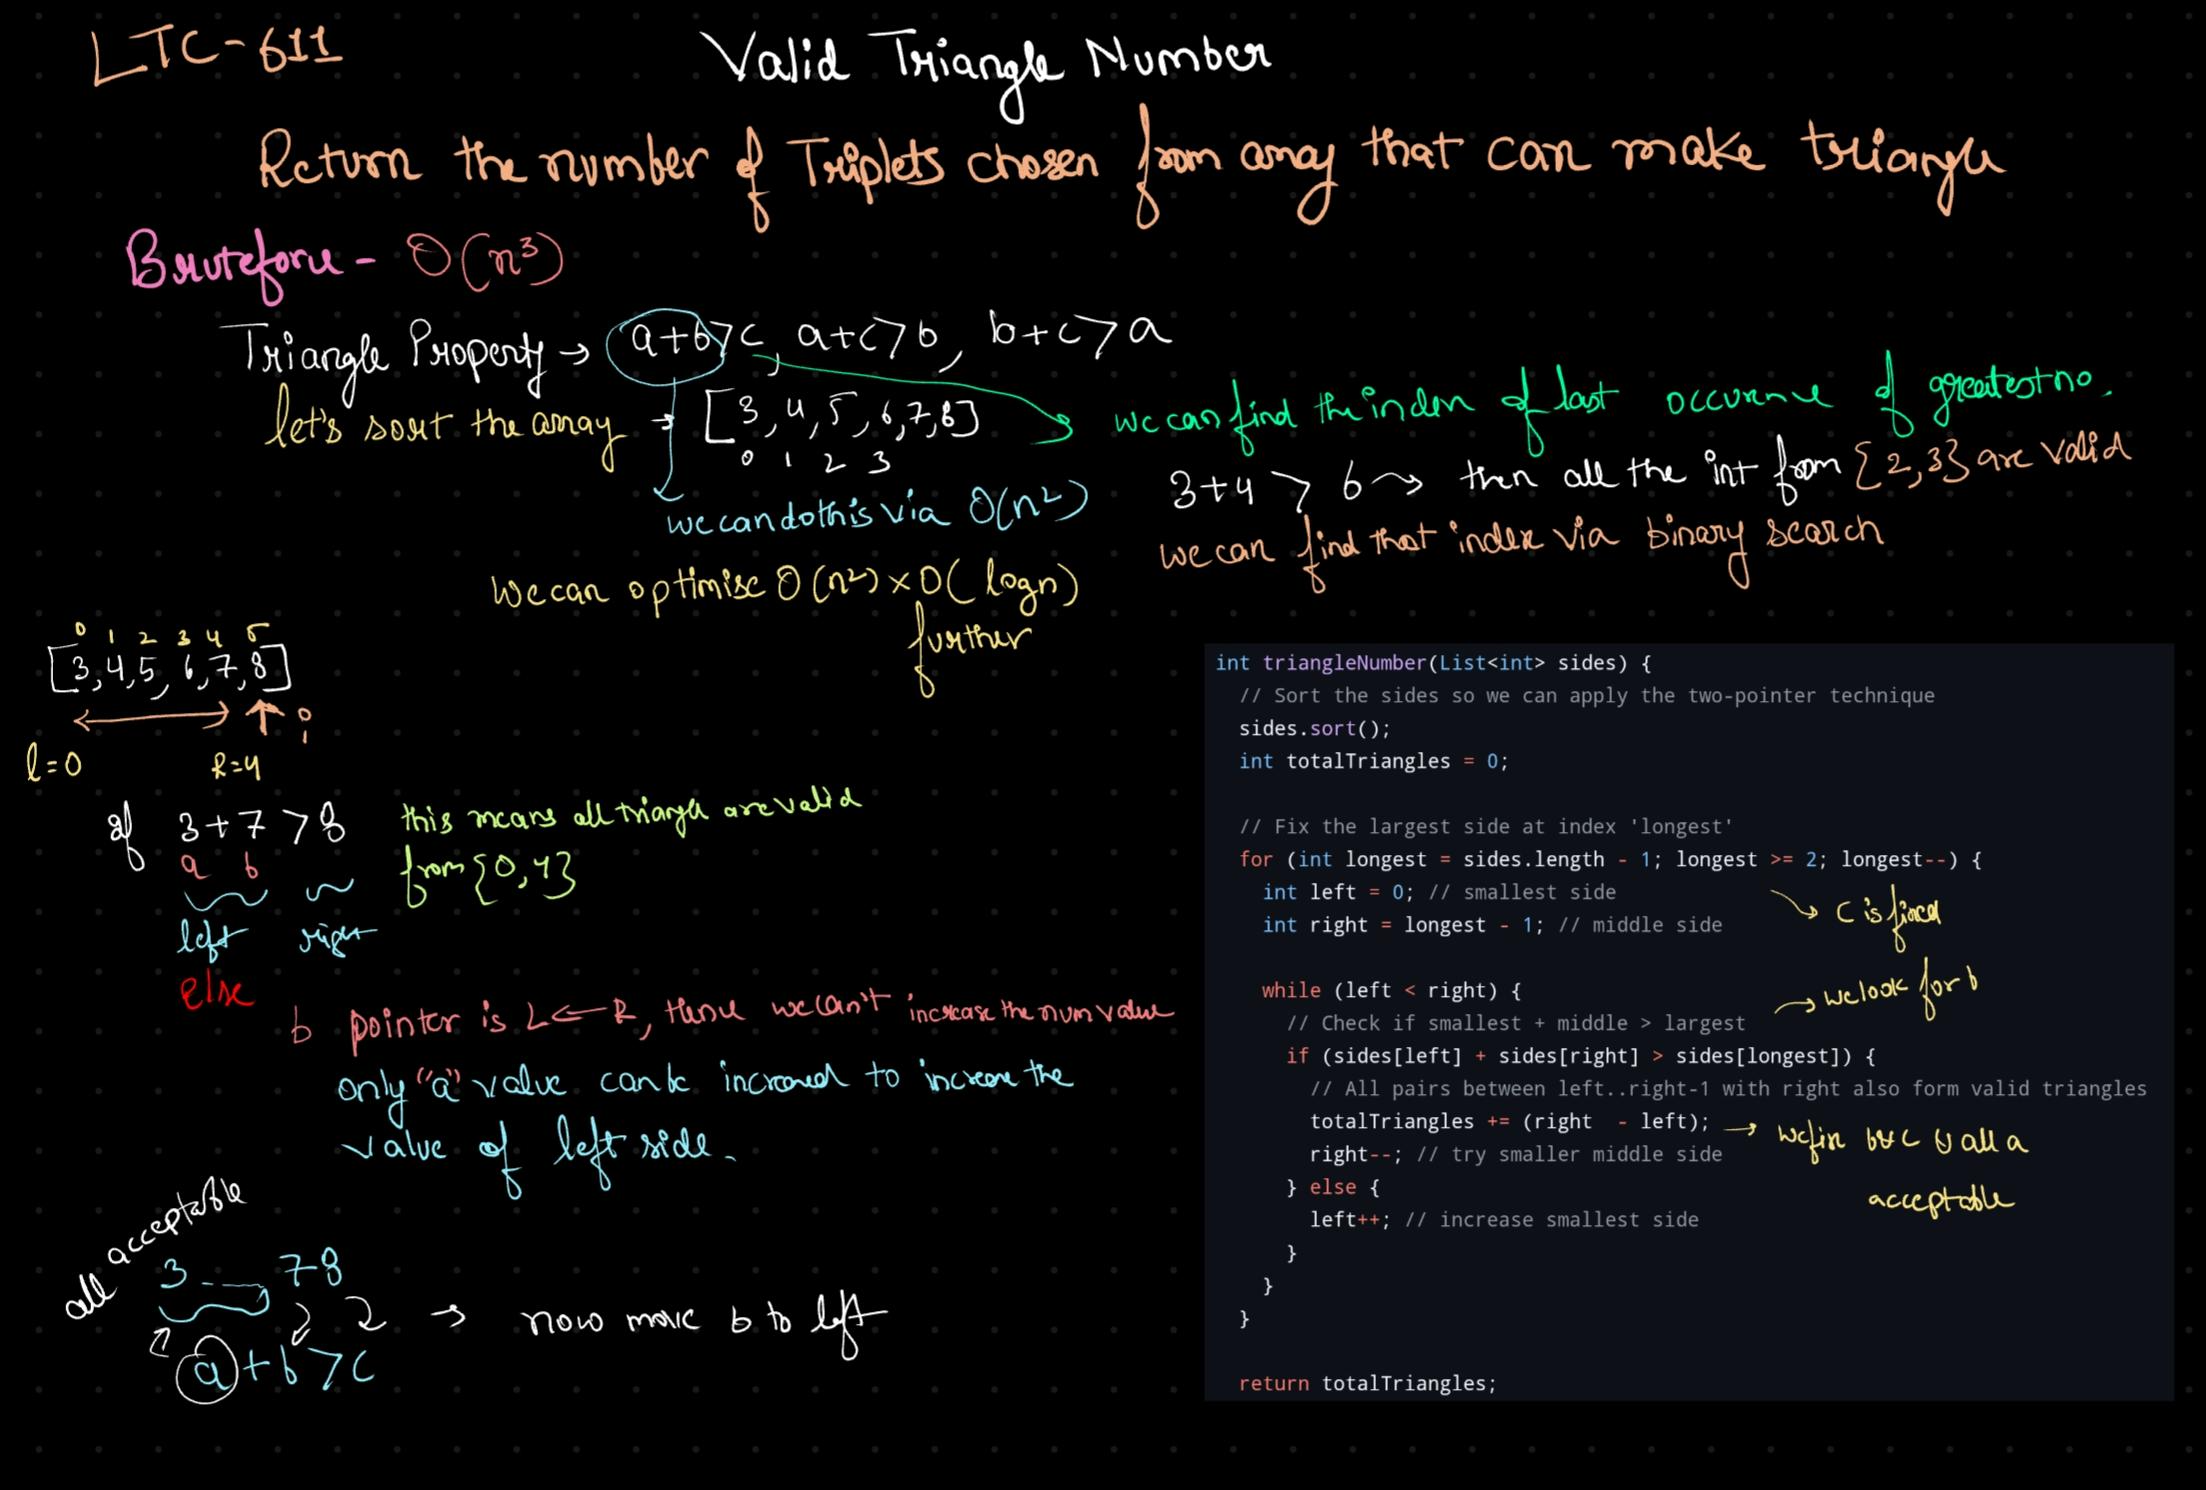 LTC-611
Valid Triangle Number
Return the number of Triplets chosen from array that can make triangle
Bruteforce - O(n³)
Triangle Property → a+b>c, a+c>b, b+c>a
let's sort the array → [3,4,5,6,7,8]
0 1 2 3
we can find the index of last occurence of greatest no.
3+4 > 6 → then all the int from {2,3} are valid
we can do this via O(n²)
we can find that index via binary search
We can optimise O(n²) × O(logn)
further
0 1 2 3 4 5
[3,4,5,6,7,8]
i
l=0 R=4
if 3+7 >8 this means all triangle are valid
a b from {0,4}
left right
else
b pointer is L ← R, hence we can't increase the num value
only "a" value can be increased to increase the
value of left side.
all acceptable
3 -- 78
→ now move b to left
a+b>c
int triangleNumber(List<int> sides) {
// Sort the sides so we can apply the two-pointer technique
sides.sort();
int totalTriangles = 0;
// Fix the largest side at index 'longest'
for (int longest = sides.length - 1; longest >= 2; longest--) {
int left = 0; // smallest side
→ C is fixed
int right = longest - 1; // middle side
while (left < right) {
→ we look for b
// Check if smallest + middle > largest
if (sides[left] + sides[right] > sides[longest]) {
// All pairs between left..right-1 with right also form valid triangles
totalTriangles += (right - left);
→ we fix b & c & all a
acceptable
right--; // try smaller middle side
} else {
left++; // increase smallest side
}
}
}
return totalTriangles;